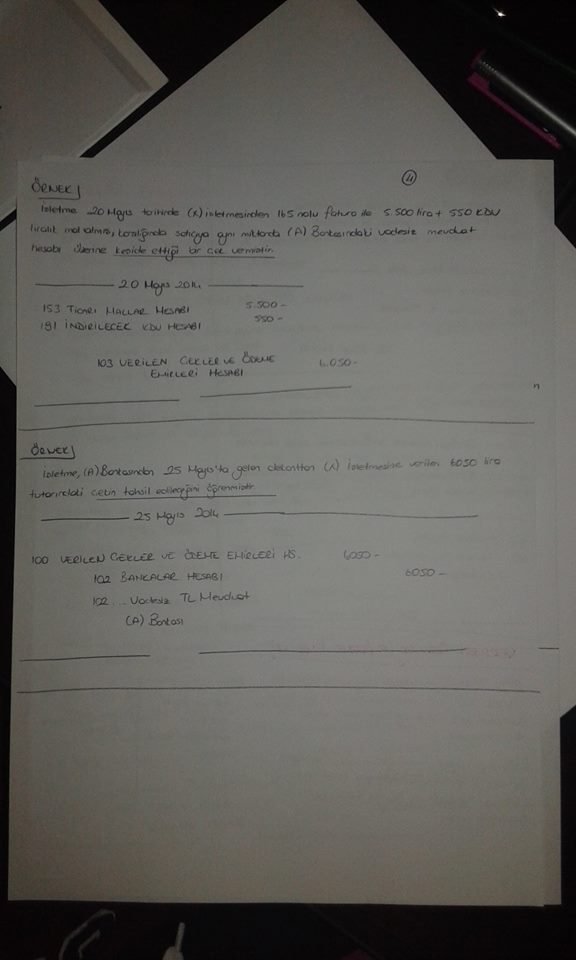 11
ÖRNEK
İşletme 20 Mayıs tarihinde (X) işletmesinden 165 nolu fatura ile 5.500 lira + 550 KDV
liralık mal almış, karşılığında satıcıya aynı miktarda (A) Bankasındaki vadesiz mevduat
hesabı üzerine keside ettiği bir çek vermiştir.
20 Mayıs 2014
153 TİCARİ MALLAR HESABI 5.500-
191 İNDİRİLECEK KDV HESABI 550-
103 VERİLEN ÇEKLER VE ÖDEME 6.050-
EMİRLERİ HESABI
ÖRNEK
İşletme, (A) Bankasından 25 Mayıs'ta gelen dekonttan (X) işletmesine verilen 6050 lira
tutarındaki çekin tahsil edileceğini öğrenmiştir.
25 Mayıs 2014
100 VERİLEN ÇEKLER VE ÖDEME EMİRLERİ HS. 6050-
102 BANKALAR HESABI 6050-
102... Vadesiz TL Mevduat
(A) Bankası